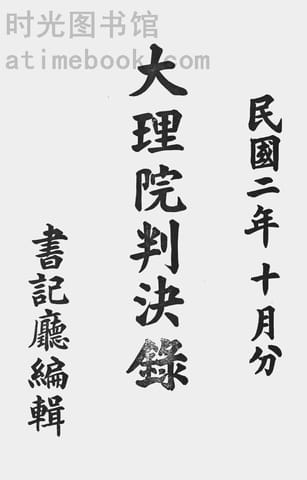 时光图书馆
atimebook.com
民國二年十月分
大理院判決錄
書記廳編輯